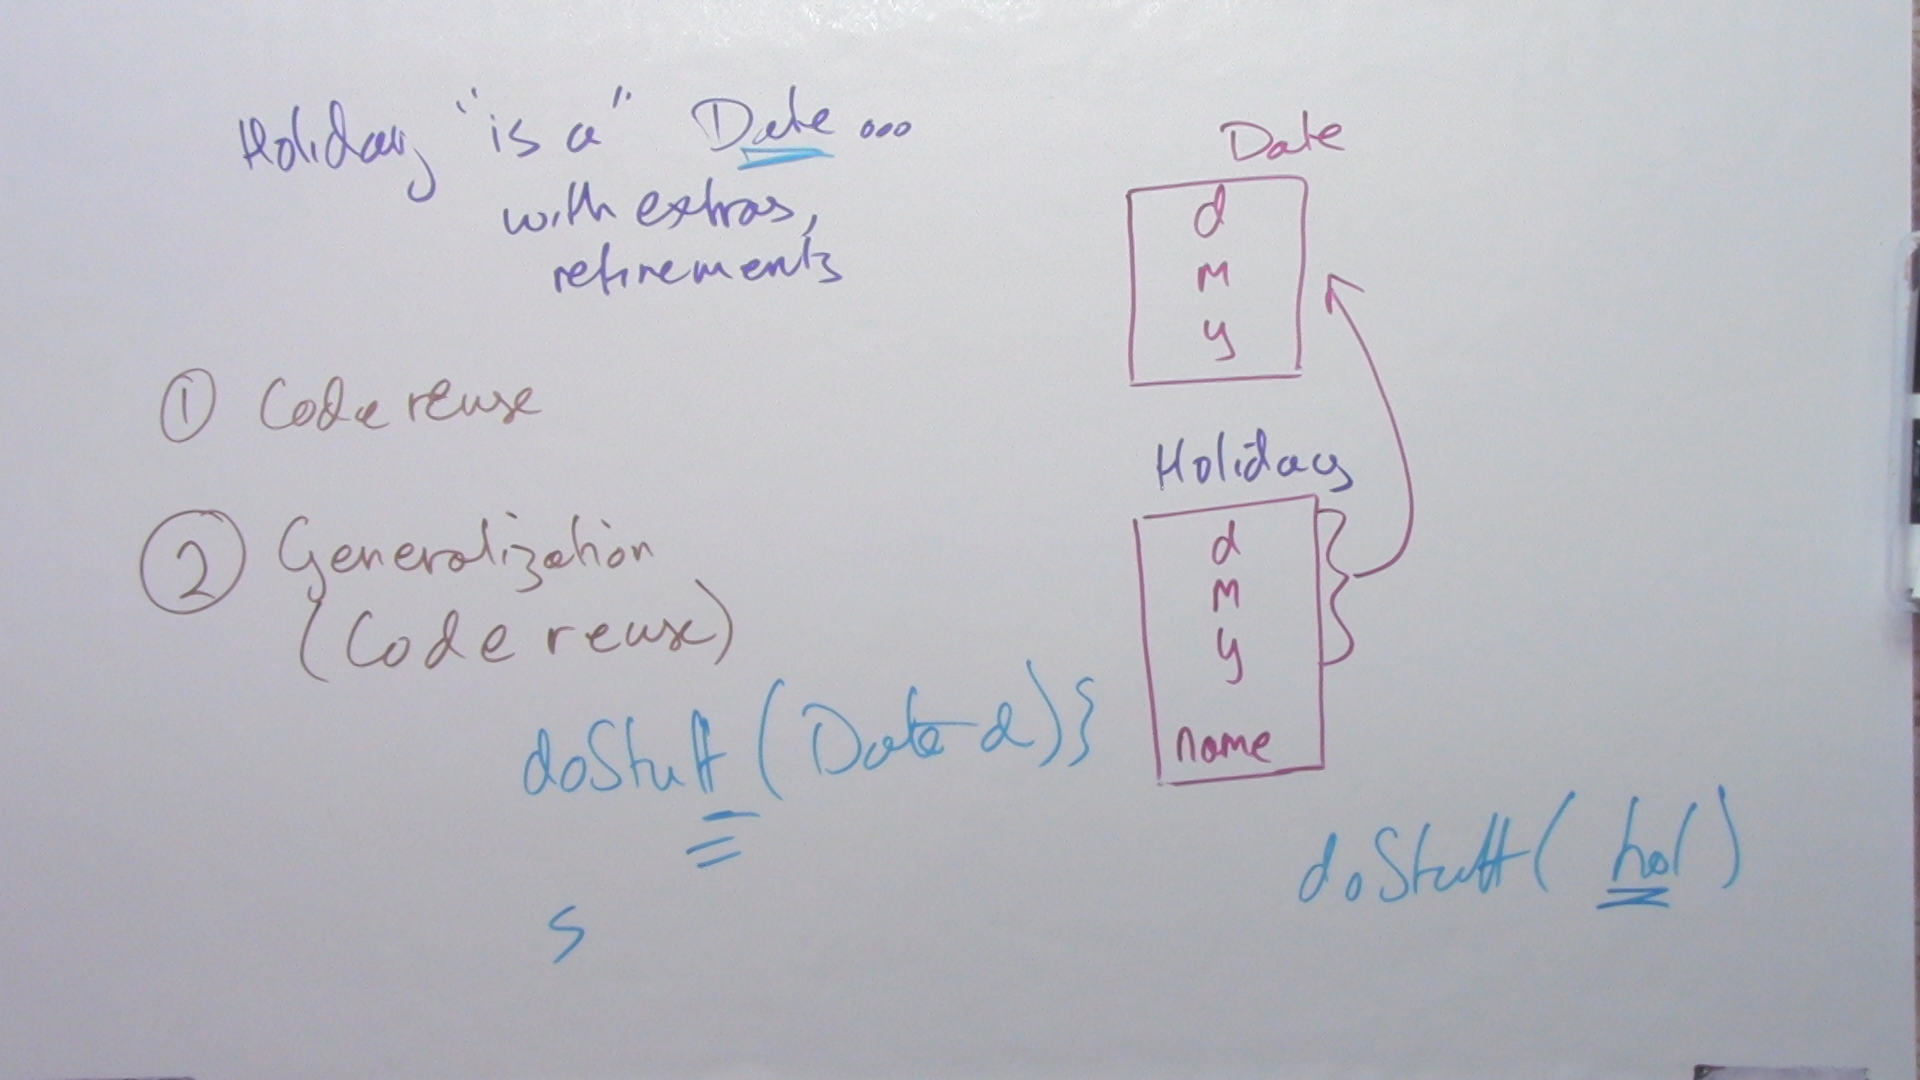 Holiday "is a" Date ...
with extras,
refinements
① Code reuse
② Generalization
(Code reuse)
doStuff (Date d) {
}
doStuff( hol )
Date
d
m
y
Holiday
d
m
y
name